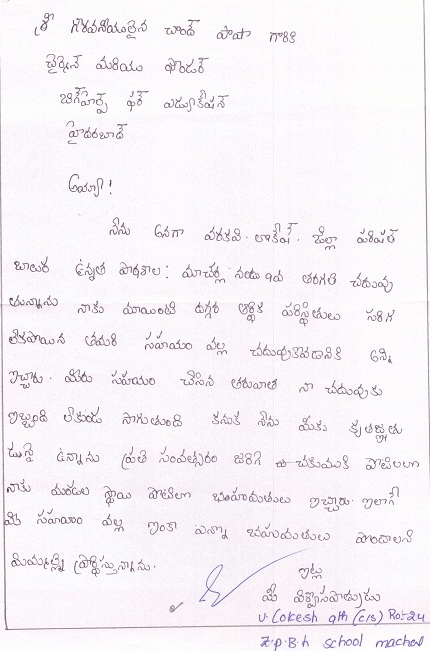 శ్రీ గౌరవనీయులైన చాంద్ పాషా గారికి
చైర్మెన్ మరియు ఫౌండర్
బిగ్‌హెల్ప్ ఫర్ ఎడ్యుకేషన్
హైదరాబాద్
అయ్యా!
నేను అనగా వరకవి. లోకేష్. జిల్లా పరిషత్
బాలుర ఉన్నత పాఠశాల: మాచర్ల నందు 9వ తరగతి చదువు
తున్నాను నాకు మాయింటి దగ్గర ఆర్థిక పరిస్థితులు సరిగ
లేకపోయిన తమరి సహయం వల్ల చదువుకోవడానికి అన్ని
ఇచ్చారు. మీరు సహయం చేసిన తరువాత నా చదువుకు
ఇబ్బంది లేకుండ సాగుతుంది కనుక నేను మీకు కృతజ్ఞతు
డున్నై ఉన్నాను ప్రతి సంవత్సరం జరిగే చకుముకి పోటిలలో
నాకు మండల స్థాయి పోటిలో బహుమతులు ఇచ్చారు. ఇలాగే
మీ సహయం వల్ల ఇంకా ఎన్నో బహుమతులు పొందాలని
మిమ్మల్ని ప్రార్థిస్తున్నాను.
ఇట్లు
మీ విశ్వాసపాత్రుడు
V. Lokesh 9th (C/S) Ro:-24
Z.P.B.h school macherl